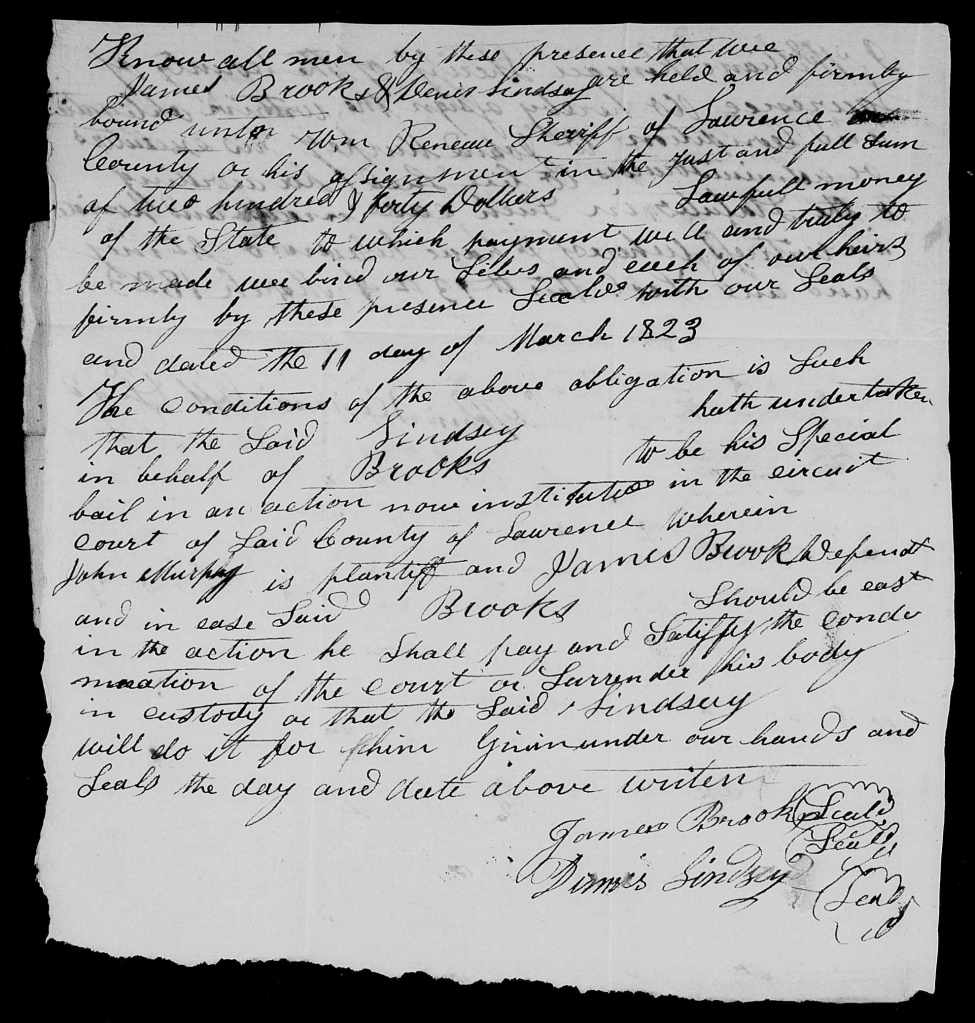 Know all men by these presence that wee
James Brooks & Denis Lindsay are held and firmly
bound unto Wm Reneau Sheriff of Lawrence
County or his assignmen in the just and full Sum
of two hundred & forty Dollers Lawfull money
of the State to which payment will and truly to
be made wee bind our Selvs and each of our heirs
firmly by these presence Seald with our Seals
and dated the 11 day of March 1823
The Conditions of the above obligation is Such
that the Said Lindsey hath undertaken
in behalf of Brooks to be his Special
bail in an action now institutee in the circuit
court of Said County of Lawrence wherein
John Murphy is plantiff and James Brook Defendt
and in case Said Brooks Should be cast
in the action he Shall pay and Satiffy the conde
mnation of the court or Surrender his body
in custody or that the Said Lindsey
will do it for him Givin under our hands and
Seals the day and date above writen
James Brooks Seald
Seald
Dinnis Lindsey Seald